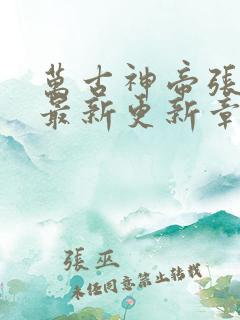 萬古神帝張
最新更新章
張巫
未經同意禁止轉載